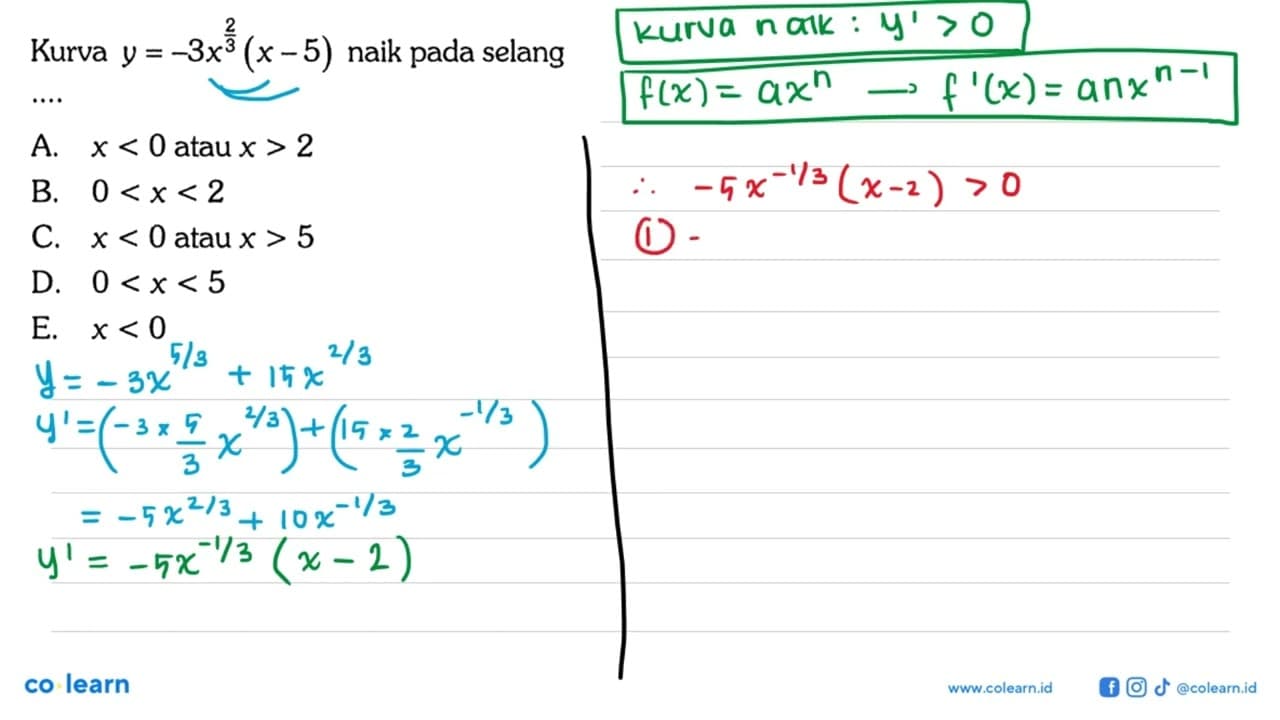 Kurva y = –3x^(2/3) (x – 5) naik pada selang
....
A. x < 0 atau x > 2
B. 0 < x < 2
C. x < 0 atau x > 5
D. 0 < x < 5
E. x < 0
y = -3x^(5/3) + 15x^(2/3)
y' = (-3 × 5/3 x^(2/3)) + (15 × 2/3 x^(-1/3))
= -5x^(2/3) + 10x^(-1/3)
y' = -5x^(-1/3) (x - 2)
kurva naik : y' > 0
f(x) = ax^n → f'(x) = anx^(n-1)
∴ -5x^(-1/3) (x-2) > 0
① -
co learn
www.colearn.id @colearn.id